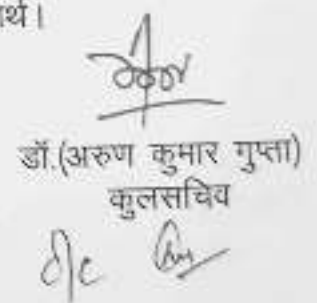 र्थ।
डॉ.(अरुण कुमार गुप्ता)
कुलसचिव